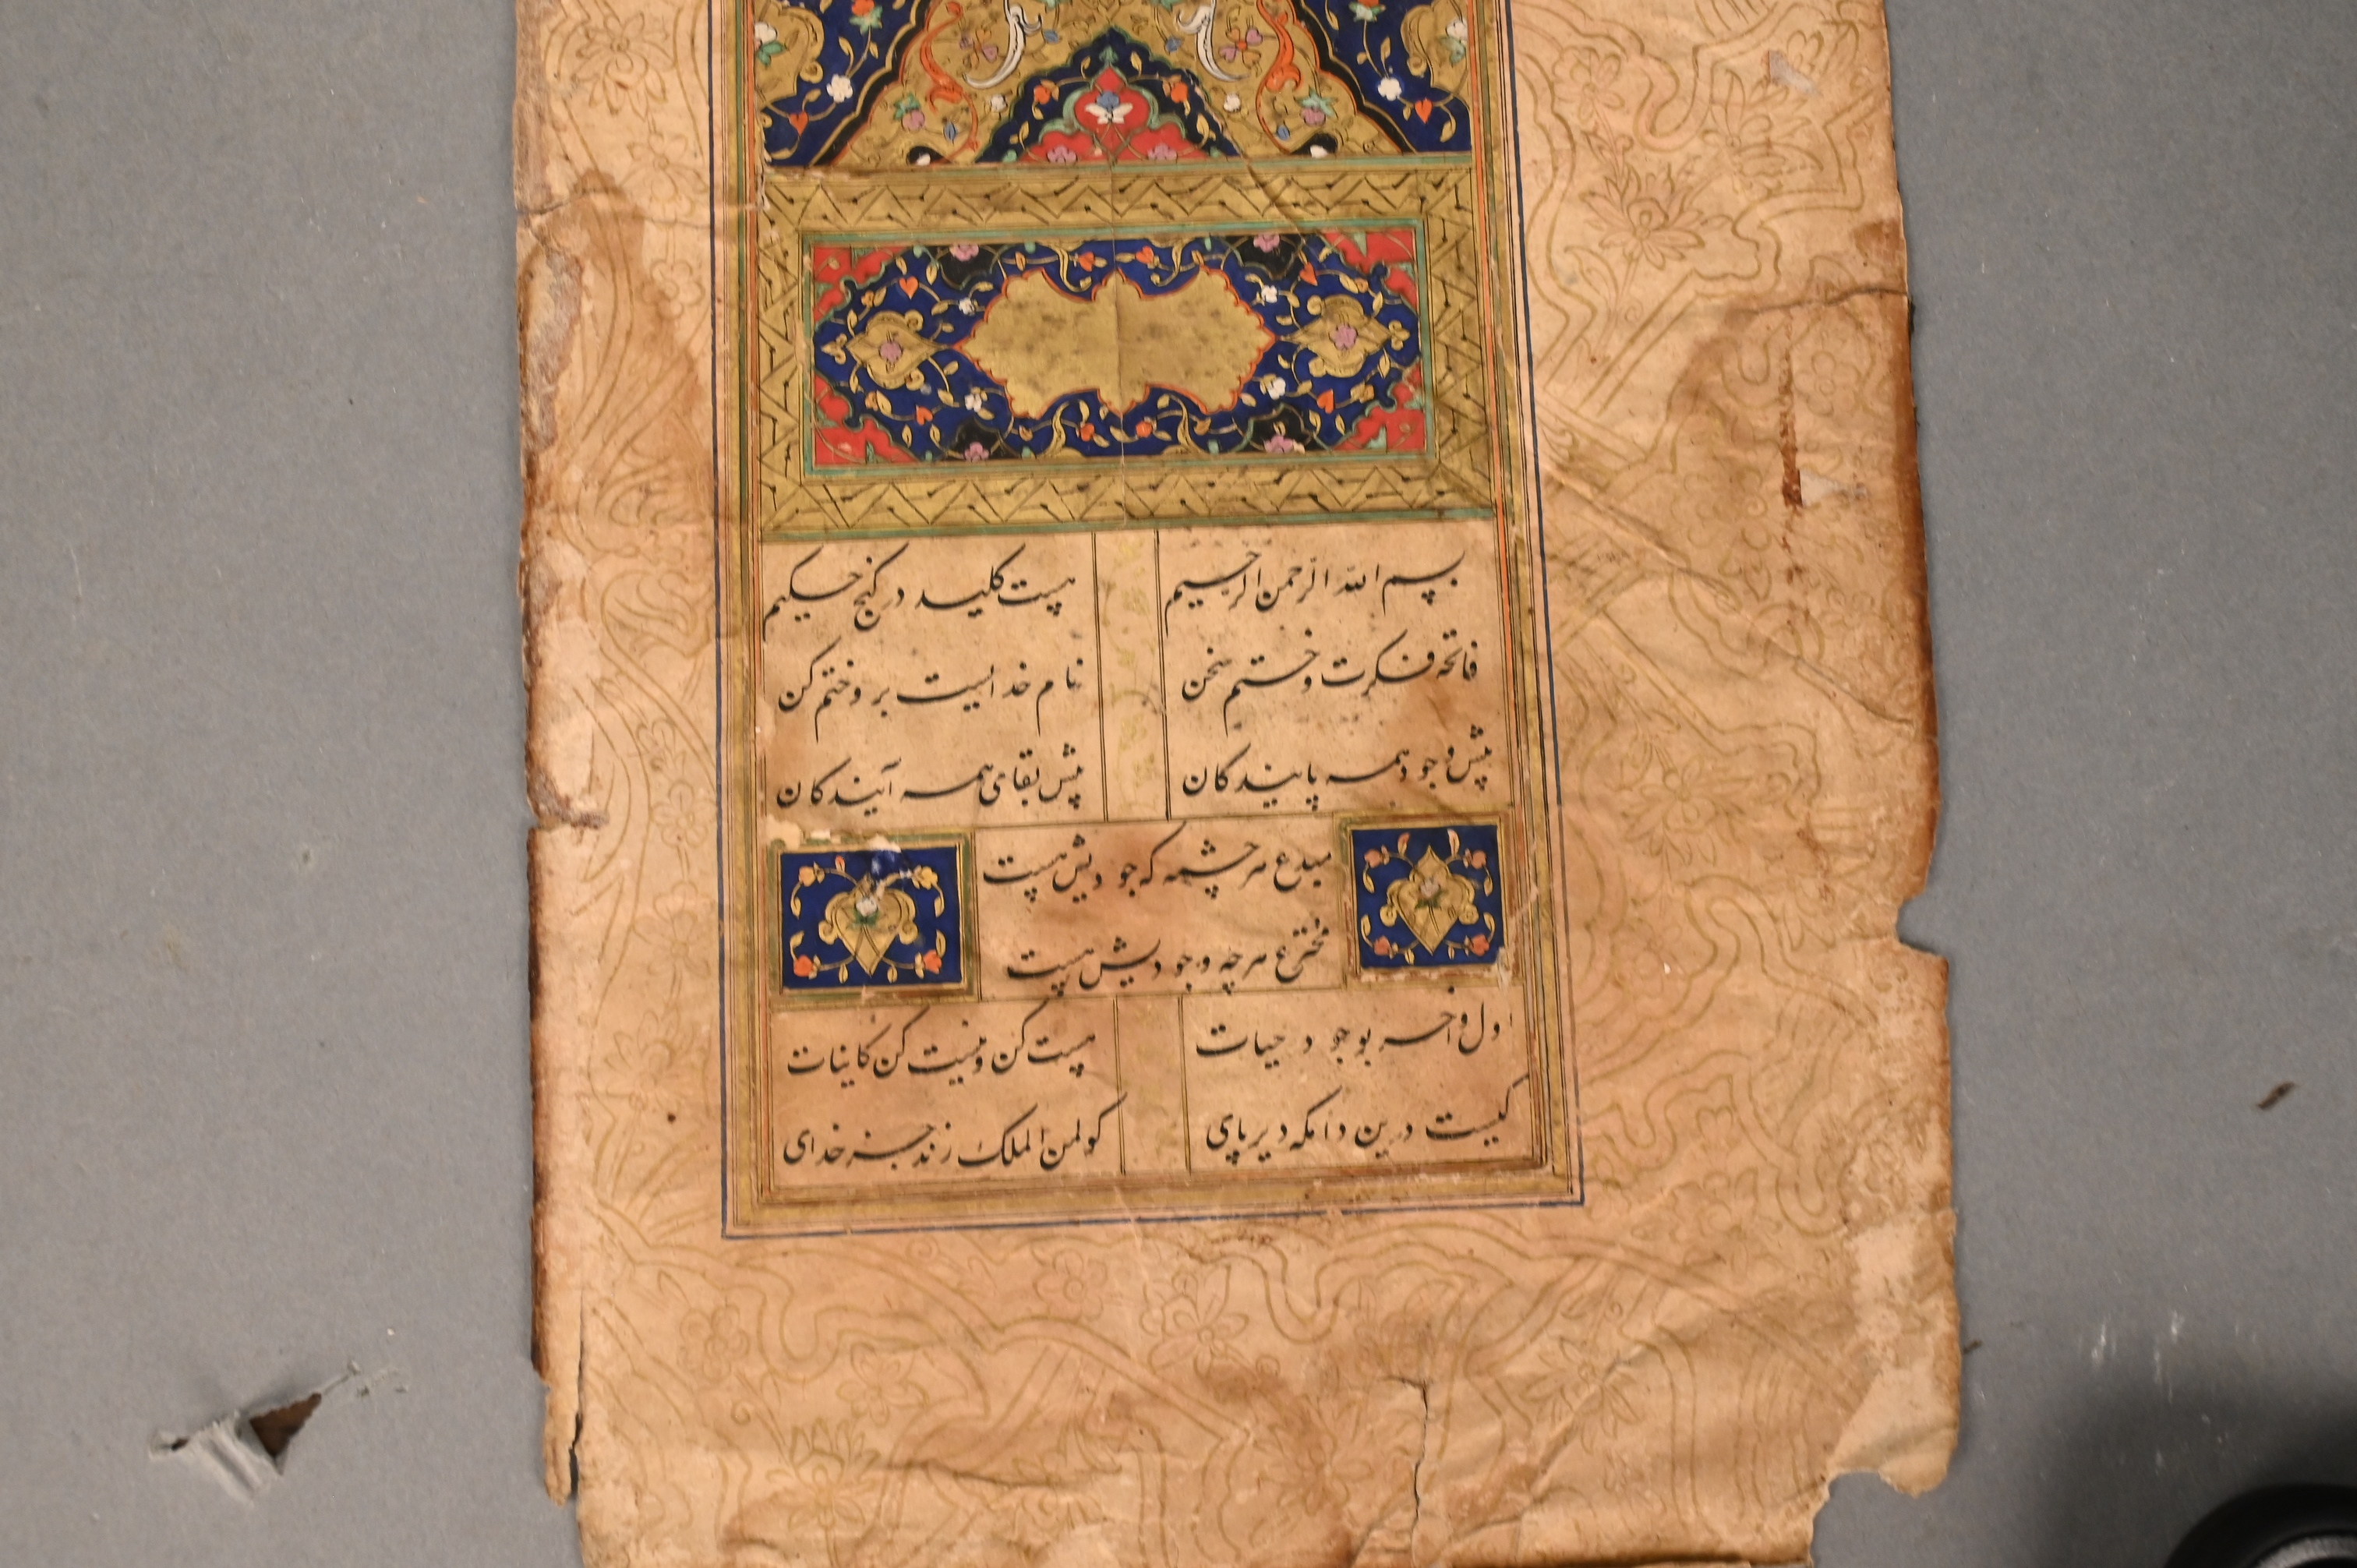 بسم الله الرحمن الرحیم هست کلید در کنج حکیم
فاتحه فکرت و ختم سخن نام خدایست برو ختم کن
پیش وجود همه پایندکان پیش بقای همه آیندکان
مبدع هر چشمه که جودیش هست
مخترع هر چه وجودیش هست
اول و آخر بوجود و حیات هست کن و نیست کن کاینات
کیست درین دامکه دیرپای کو لمن الملک زند جز خدای